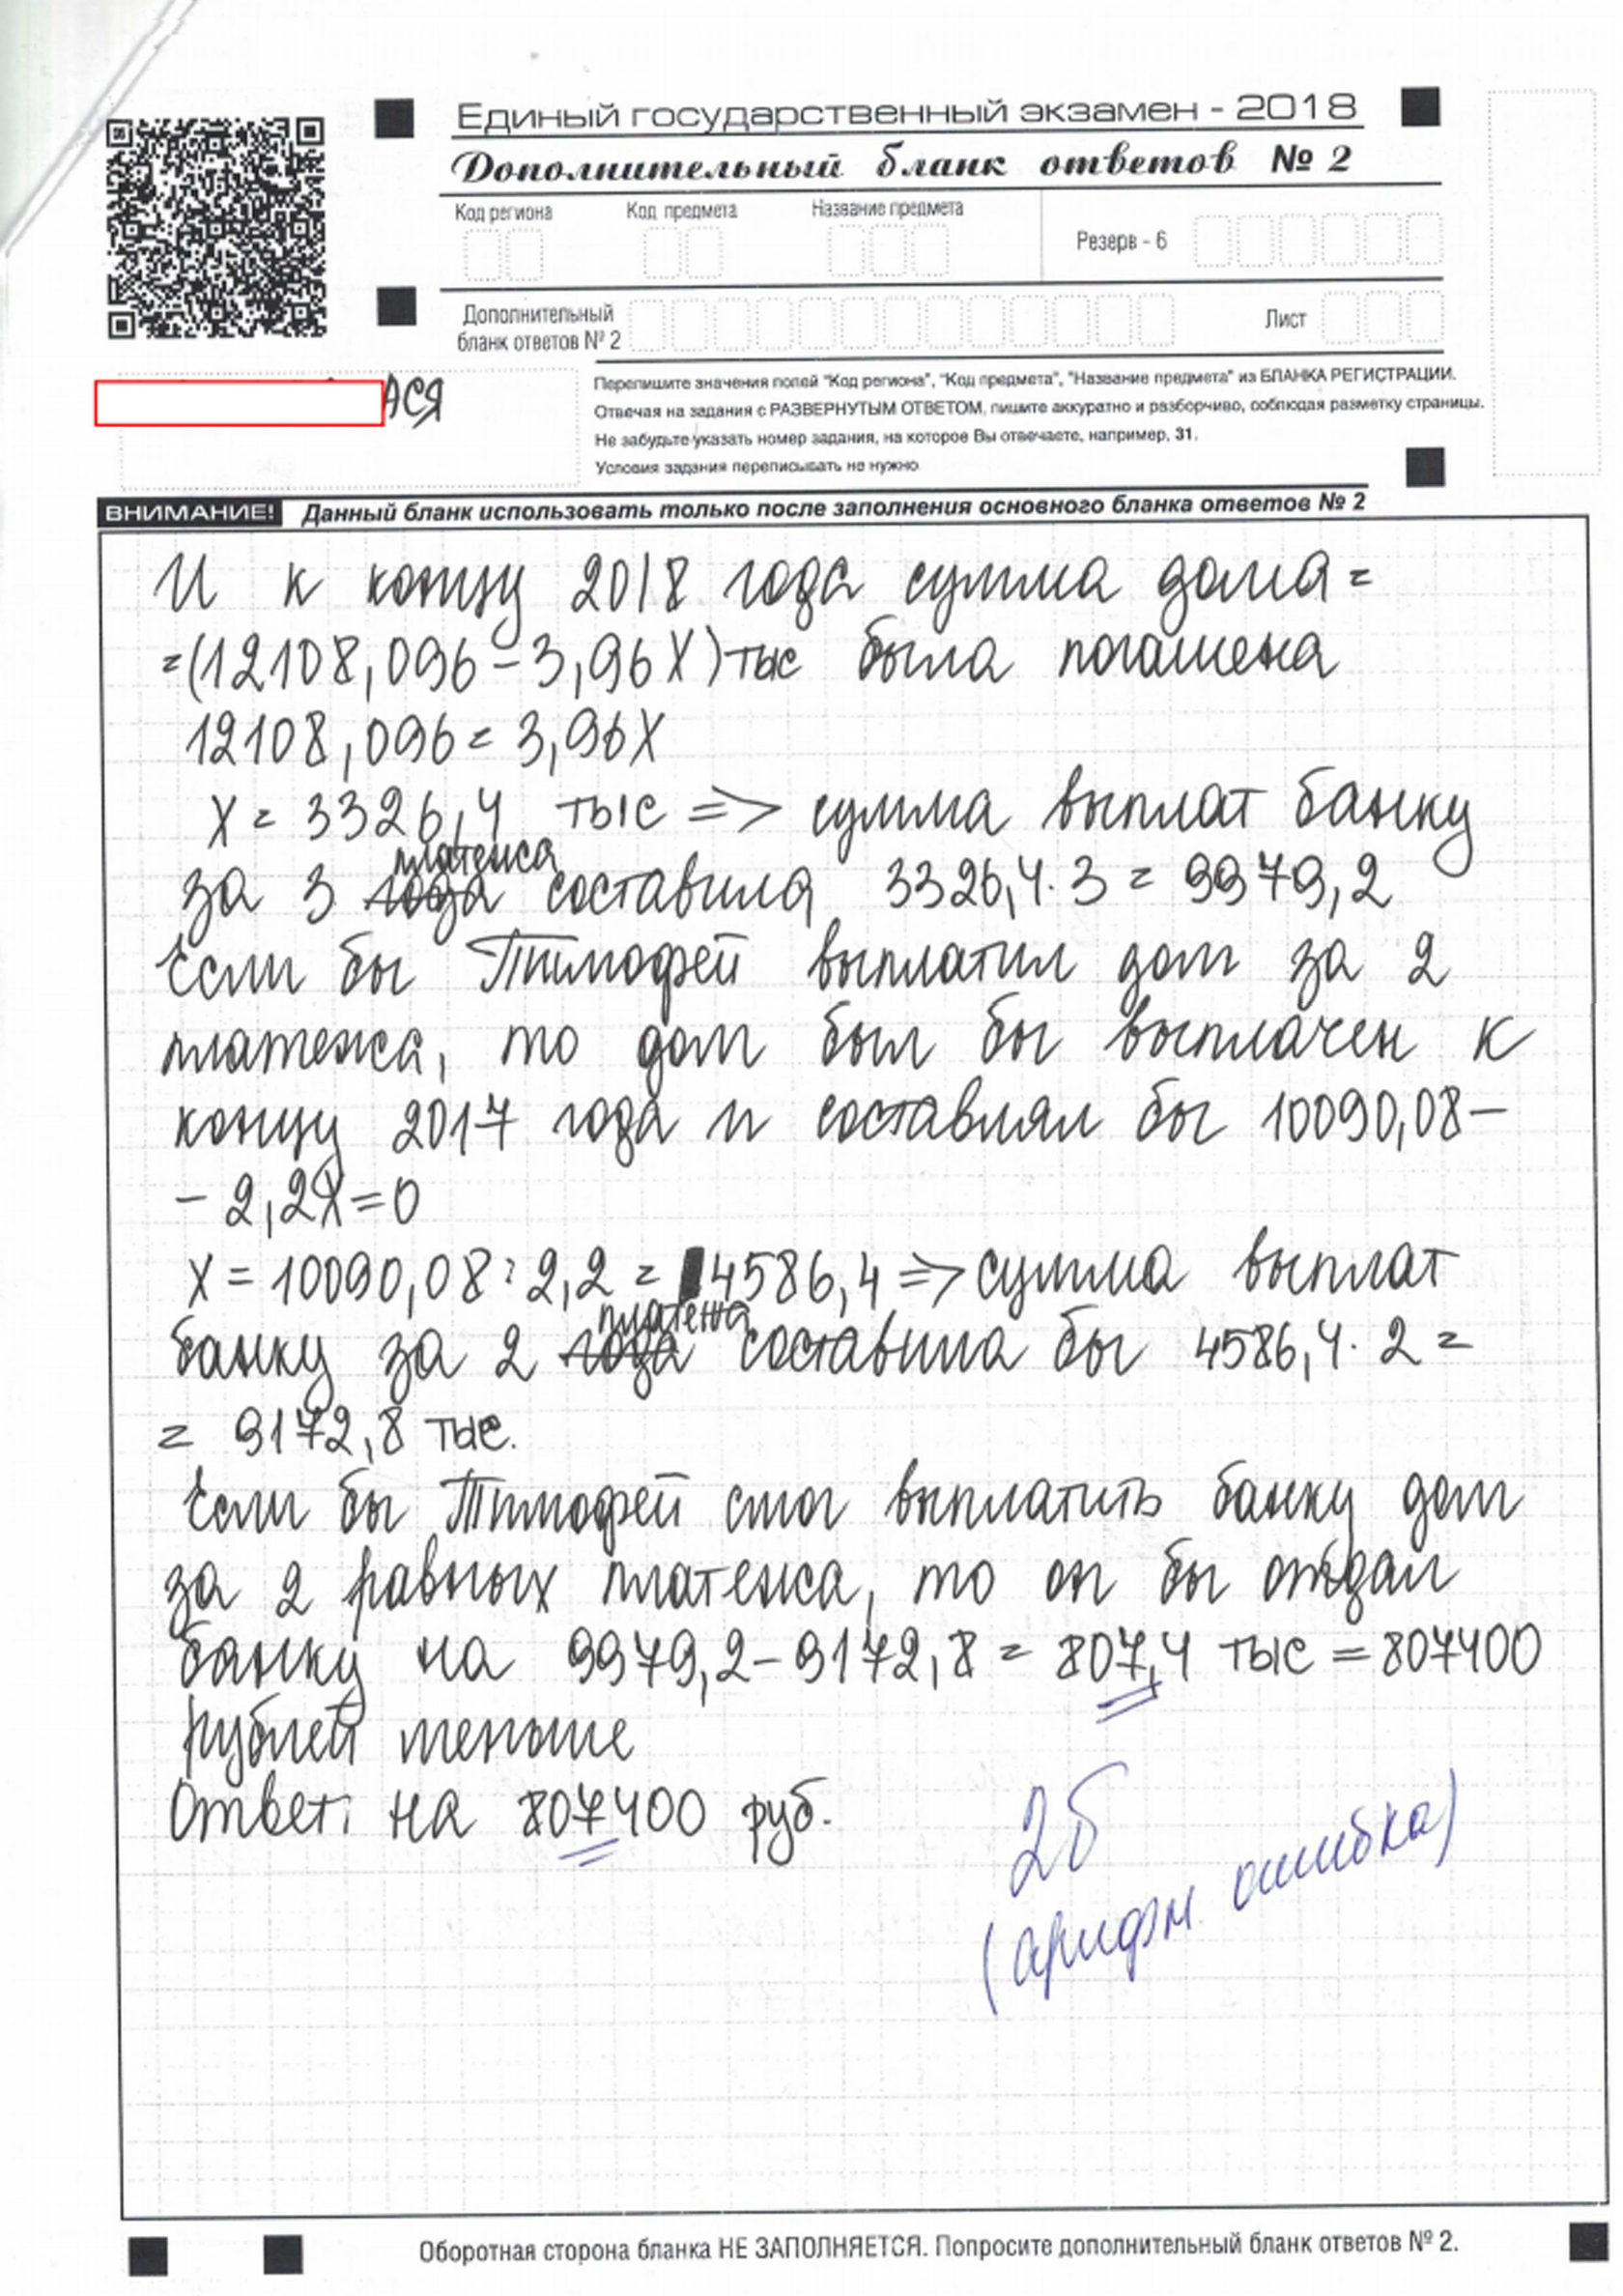 Единый государственный экзамен - 2018
Дополнительный бланк ответов № 2
Код региона
Код предмета
Название предмета
Резерв - 6
Дополнительный
бланк ответов № 2
Лист
АСЯ
Перепишите значения полей "Код региона", "Код предмета", "Название предмета" из БЛАНКА РЕГИСТРАЦИИ.
Отвечая на задания с РАЗВЕРНУТЫМ ОТВЕТОМ, пишите аккуратно и разборчиво, соблюдая разметку страницы.
Не забудьте указать номер задания, на которое Вы отвечаете, например, 31.
Условия задания переписывать не нужно.
ВНИМАНИЕ! Данный бланк использовать только после заполнения основного бланка ответов № 2
И к концу 2018 года сумма долга =
=(12108,096 - 3,96X) тыс была погашена
12108,096 = 3,96X
X = 3326,4 тыс => сумма выплат банку
платежа
за 3 года составила 3326,4 · 3 = 9979,2
Если бы Тимофей выплатил долг за 2
платежа, то долг был бы выплачен к
концу 2017 года и составлял бы 10090,08 -
- 2,2X = 0
X = 10090,08 : 2,2 = 4586,4 => сумма выплат
платежа
банку за 2 года составила бы 4586,4 · 2 =
= 9172,8 тыс.
Если бы Тимофей смог выплатить банку долг
за 2 равных платежа, то он бы отдал
банку на 9979,2 - 9172,8 = 807,4 тыс = 807400
рублей меньше
Ответ: на 807400 руб.
2б
(арифм. ошибка)
Оборотная сторона бланка НЕ ЗАПОЛНЯЕТСЯ. Попросите дополнительный бланк ответов № 2.